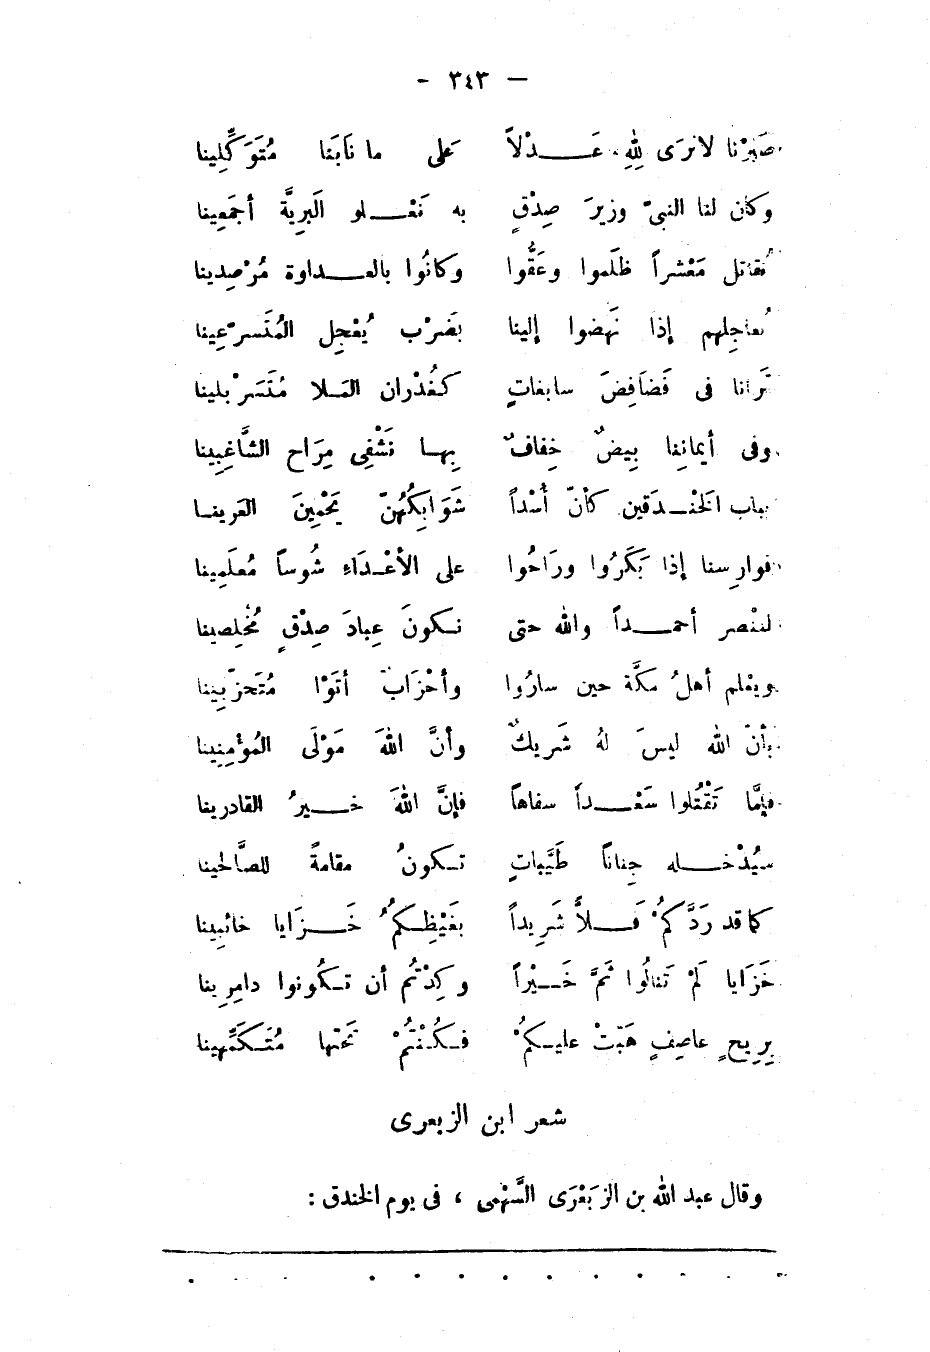 — ٣٤٣ -
صَبَرْنا لا نرَى لِلهِ عَـــدْلاً على ما نَابَنا مُتَوَكِّلِينا
وكان لنا النبىّ وزيرَ صِدْقٍ به نَعْـــلو البَرِيَّة أجمَعِينا
نُقاتل مَعْشراً ظَلموا وعَقُّوا وكانُوا بالعـــداوة مُرْصِدينا
نُعاجِلهم إذا نَهَضوا إلينا بضَرْب يُعْجِل المُتَسرّعِينا
تَرانا فى فَضافِضَ سابغاتٍ كغُدْران المَلا مُتَسَرْبلينا
وفى أيمانِنا بِيضٌ خِفافٌ بِهـا نَشْفِى مِرَاح الشَّاغِبِينا
بباب الخنْـدَقين كأنّ أُسْداً شَوَابكُهُنّ يَحْمِينَ العَرينـا
فوارِسنا إذا بَكَرُوا ورَاحُوا على الأعْـدَاءِ شُوساً مُعلَمِينا
لننْصر أحمـــداً والله حتى نـكونَ عِبادَ صِدْقٍ مُخْلِصينا
ويعْلم أهلُ مكَّة حين سارُوا وأحْزَابٌ أتَوْا مُتَحزّبِينا
بأنّ الله ليسَ لهُ شَريكٌ وأنَّ اللهَ مَوْلَى المُؤْمِنِينا
فإمَّا تَقْتُلوا سَعْـــداً سفاهاً فإنَّ اللهَ خـــيرُ القادرينا
سيُدْخـــله جِناناً طَيَّباتٍ تـكونُ مقامةً للصَّالحينا
كما قد رَدَّكمُ فَـــلاًّ شَرِيداً بغَيْظِـكمُ خَـــزَايا خائبِينا
خَزَايا لَمْ تَنالُوا ثمَّ خَـــيْراً وكِدْتُم أن تـكُونوا دامِرِينا
بِرِيحٍ عاصِفٍ هَبّتْ عليـكمُ فـكُـنْتُمْ تَحْتَها مُتَـكَمِّهِينا
شعر ابن الزبعرى
وقال عبد الله بن الزبَعْرَى السَّهْمى ، فى يوم الخندق :